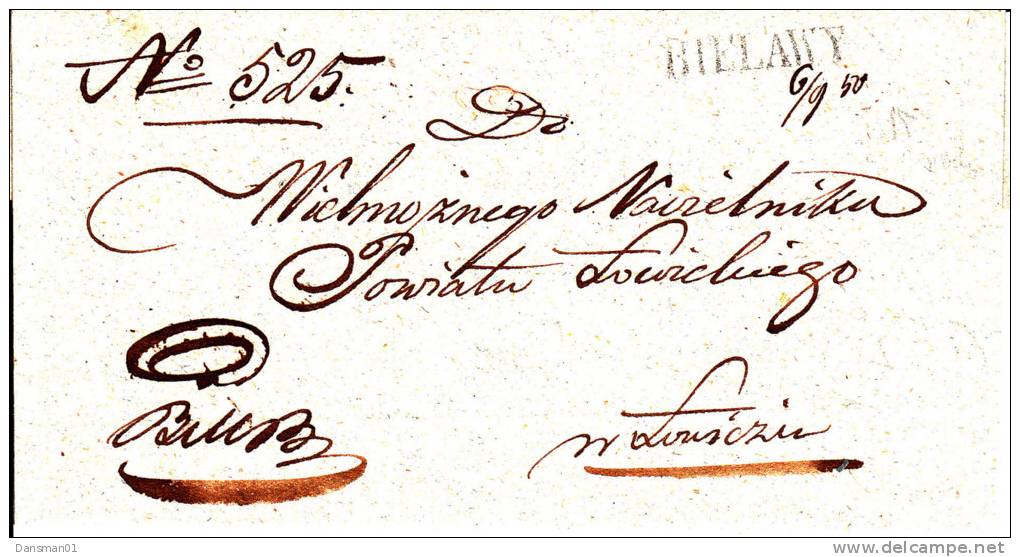 No 525.
BIELAWY
6/9 50
Do
Wielmożnego Naczelnika
Powiatu Łowickiego
w Łowiczu
Dansman01
delcampe.net